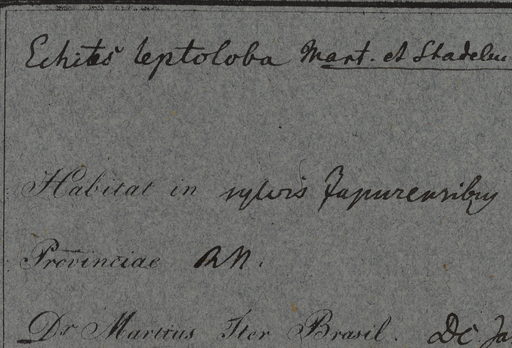 Echites leptoloba Mart. et Stadelm
Habitat in sylvis Japurensibus
Provinciae R.N.
Dr Martius Iter Brasil. Dc. Ja